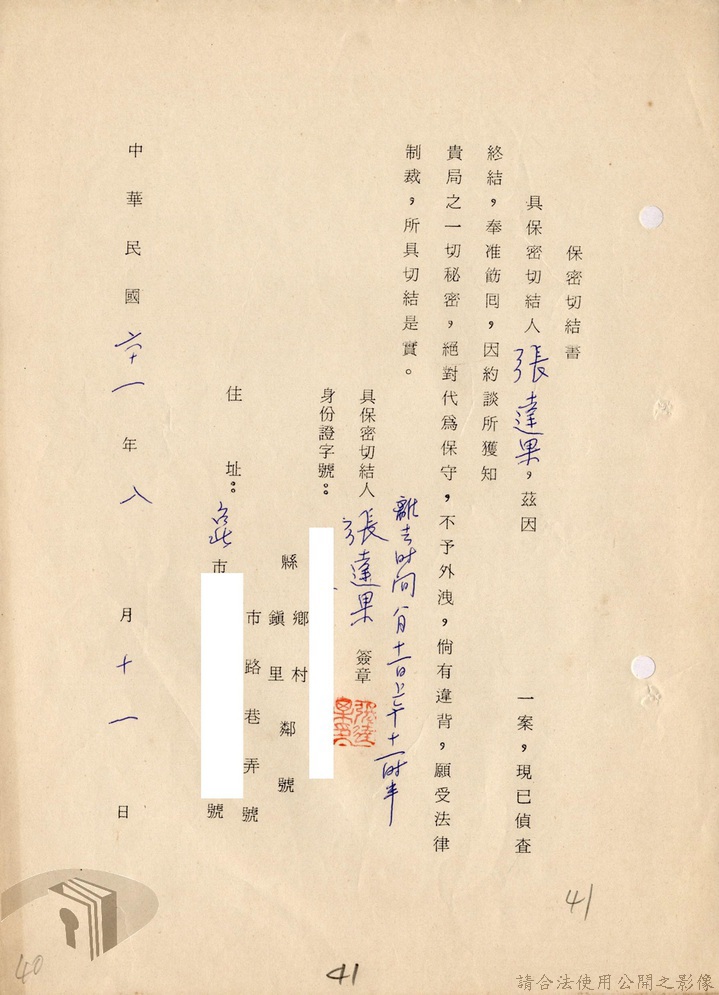 保密切結書
具保密切結人張達果，茲因　　　一案，現已偵查
終結，奉准飭回，因約談所獲知
貴局之一切秘密，絕對代為保守，不予外洩，倘有違背，願受法律
制裁，所具切結是實。
離去时间八月十一日上午十一时半
具保密切結人張達果簽章
張達果
身份證字號：
縣
鄉村鄰號
鎮里
市路巷弄號
住址：
市
號
中華民國六十一年八月十一日
41
41
40
請合法使用公開之影像